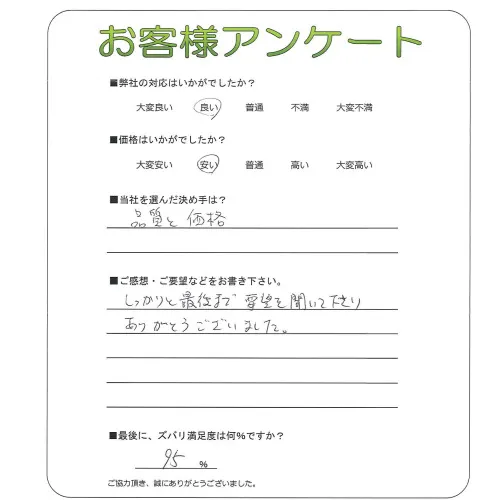 お客様アンケート
■弊社の対応はいかがでしたか？
大変良い 良い 普通 不満 大変不満
■価格はいかがでしたか？
大変安い 安い 普通 高い 大変高い
■当社を選んだ決め手は？
品質と価格
■ご感想・ご要望などをお書き下さい。
しっかりと最後まで要望を聞いて下さり
ありがとうございました。
■最後に、ズバリ満足度は何%ですか？
95 %
ご協力頂き、誠にありがとうございました。